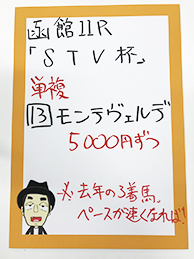 函館11R
「STV杯」
単複
13 モンテヴェルデ
5000円ずつ
※去年の3着馬。
ペースが速くなれば!